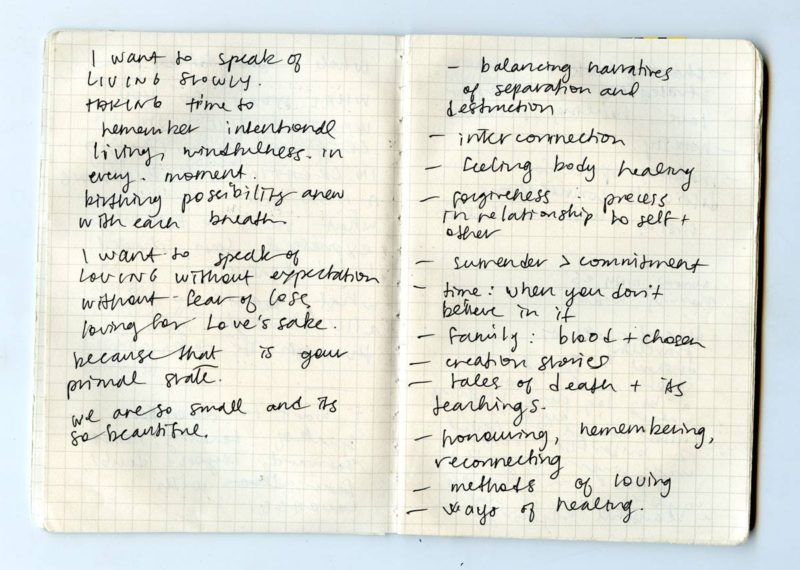 I want to speak of
LIVING slowly.
TAKING time to
remember intentional
living, mindfulness. in
every. moment.
birthing possibility anew
with each breath.
I want to speak of
LOVING without expectation
without fear of loss
loving for Love's sake.
because that is your
primal state.
we are so small and its
so beautiful.
- balancing narratives
of separation and
destruction
- interconnection
- feeling body healing
- forgiveness : process
in relationship to self +
other
- surrender > commitment
- time : when you don't
believe in it
- family : blood + chosen
- creation stories
- tales of death + its
teachings.
- honouring, remembering,
reconnecting
- methods of loving
- ways of healing.